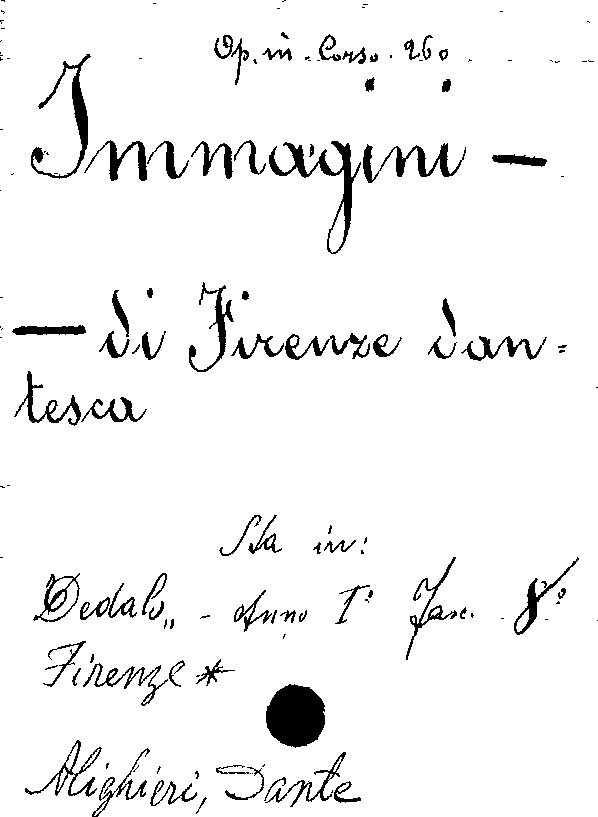 Op. in Corso. 260
Immagini —
— di Firenze dan=
tesca
Sta in:
Dedalo„ - Anno I° Fasc. 8°
Firenze *
Alighieri, Dante